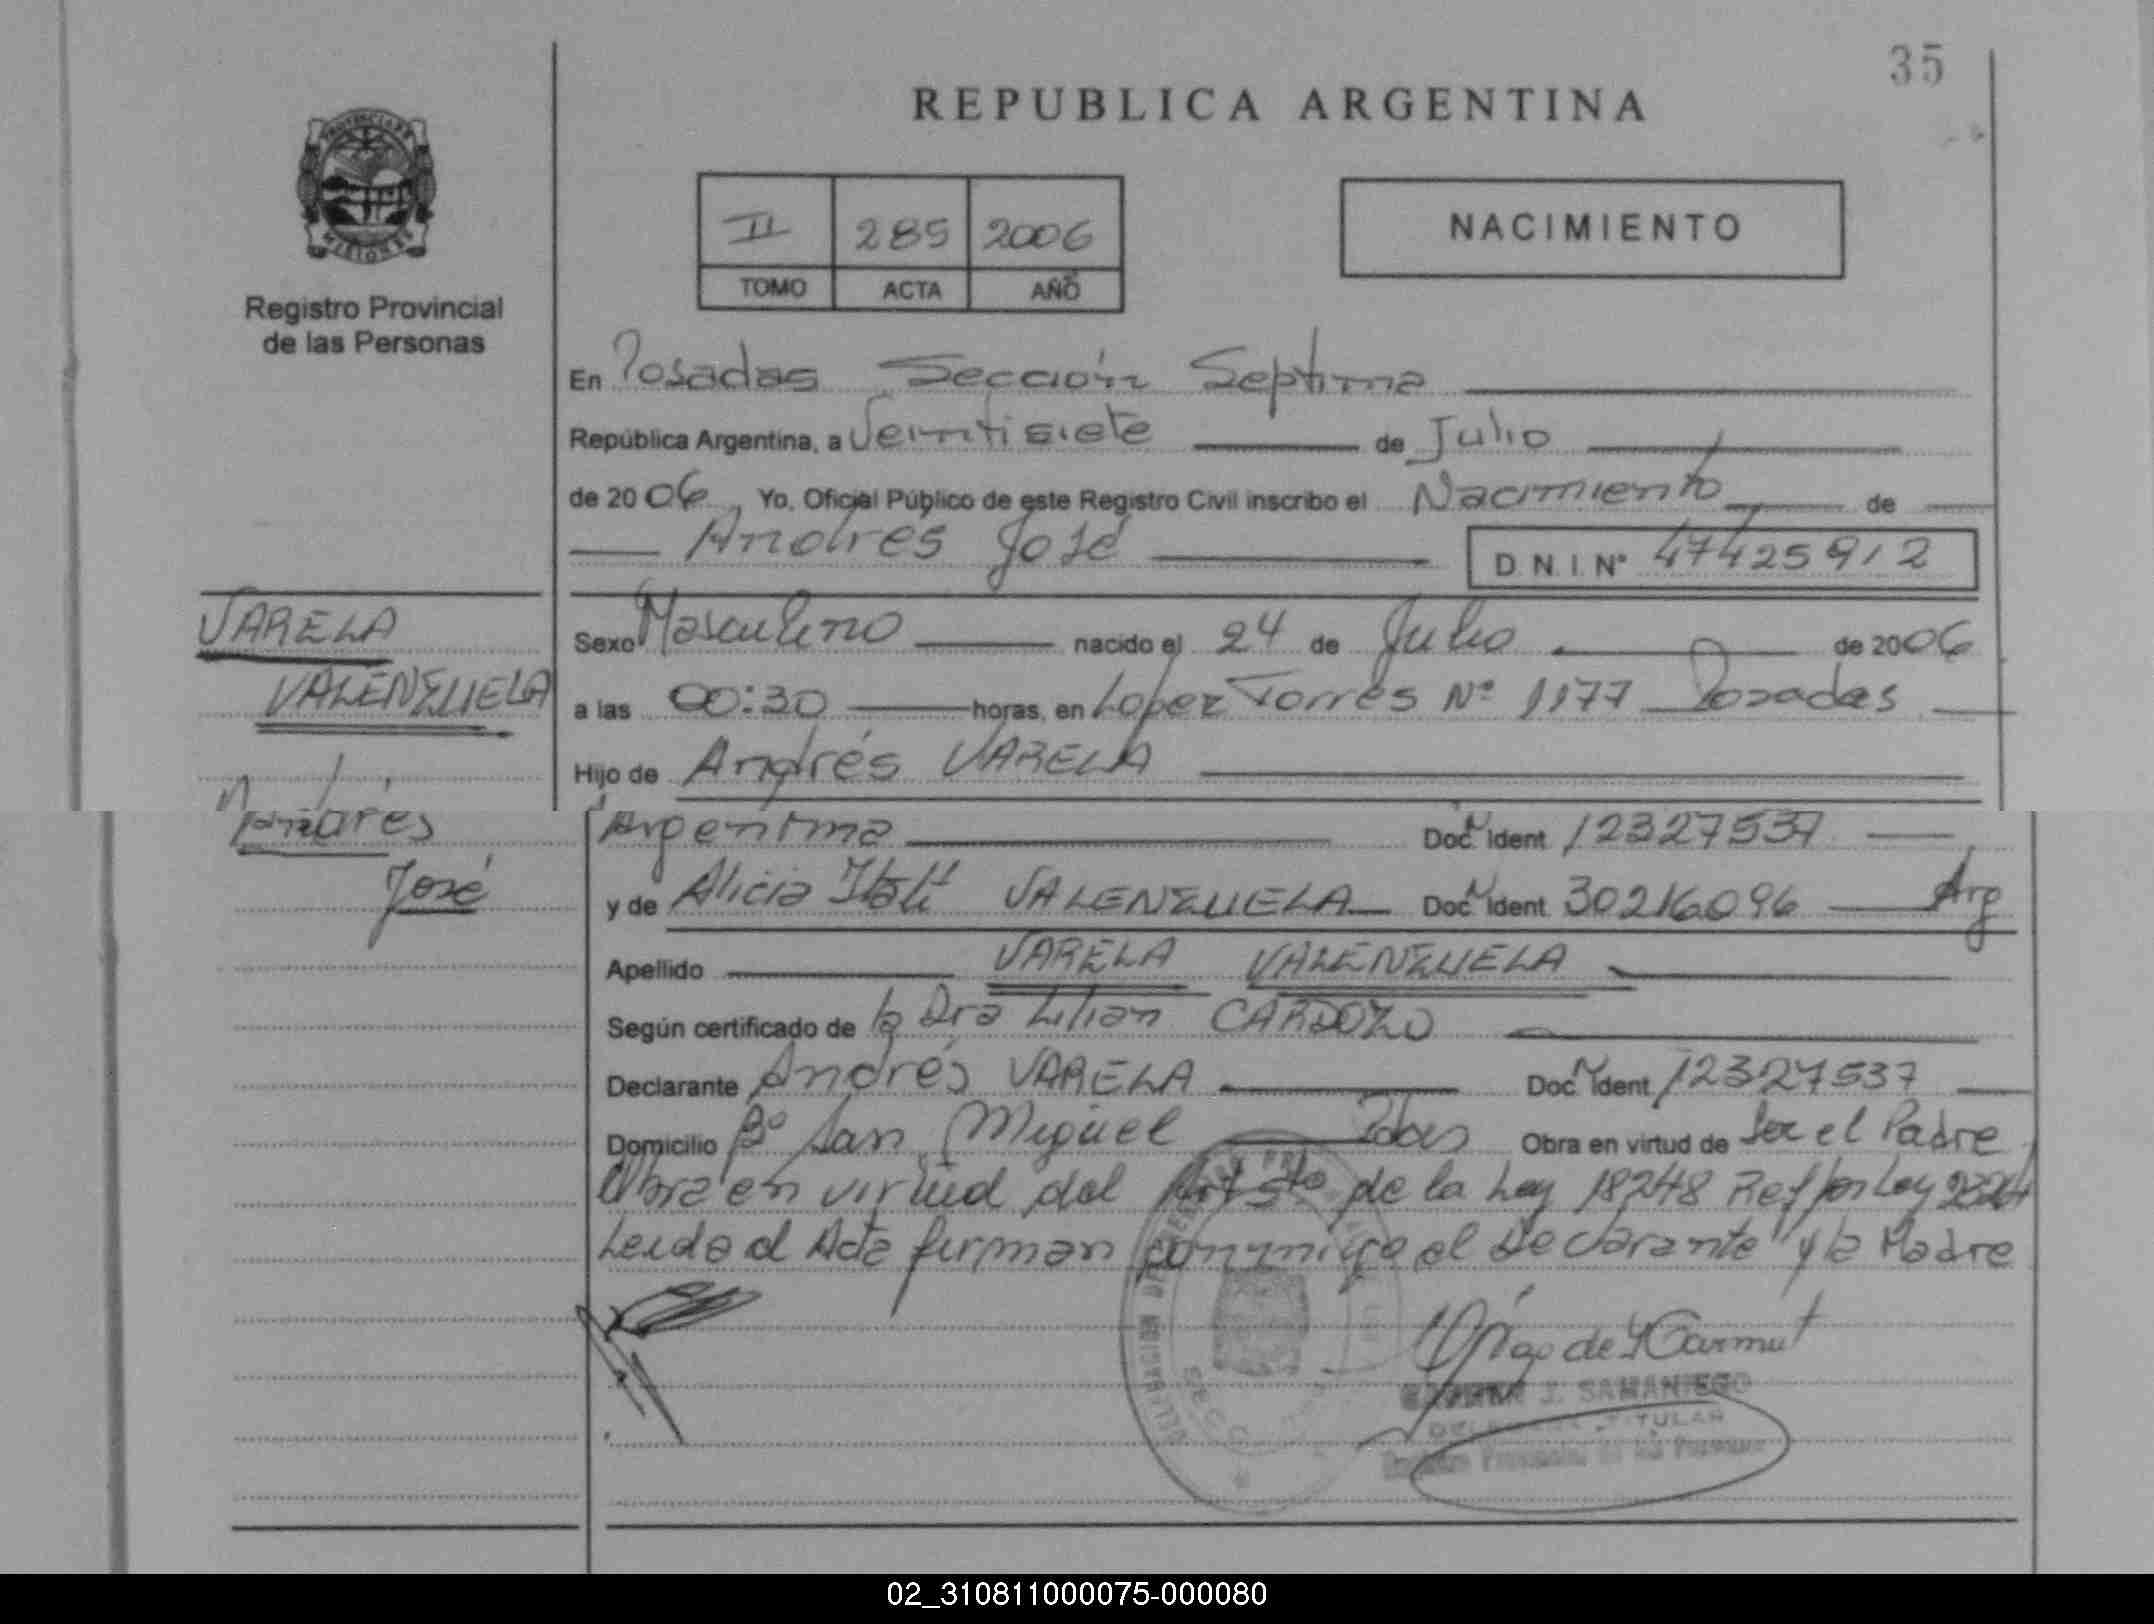 35
REPUBLICA ARGENTINA
PROVINCIA DE
MISIONES
II 285 2006
TOMO ACTA AÑO
NACIMIENTO
Registro Provincial
de las Personas
En Posadas Sección Septima
República Argentina, a Veintisiete de Julio
de 2006, Yo, Oficial Público de este Registro Civil inscribo el Nacimiento de
Andrés José D.N.I. Nº 47425912
VARELA
VALENZUELA
Andrés
José
Sexo Masculino nacido el 24 de Julio de 2006
a las 00:30 horas, en Lopez Torres Nº 1177 Posadas
Hijo de Andrés VARELA
Argentina Doc. Ident 12327537
y de Alicia Itatí VALENZUELA Doc. Ident 30216096 Arg
Apellido VARELA VALENZUELA
Según certificado de la Dra Lilian CARDOZO
Declarante Andrés VARELA Doc. Ident 12327537
Domicilio Bº San Miguel Pdas Obra en virtud de Ser el Padre
Obra en virtud del Art 5to de la Ley 18248 Ref por Ley
Leida el Acta firman conmigo el Declarante y la Madre
J. SAMANIEGO
TITULAR
Registro Provincial de las Personas
02_310811000075-000080